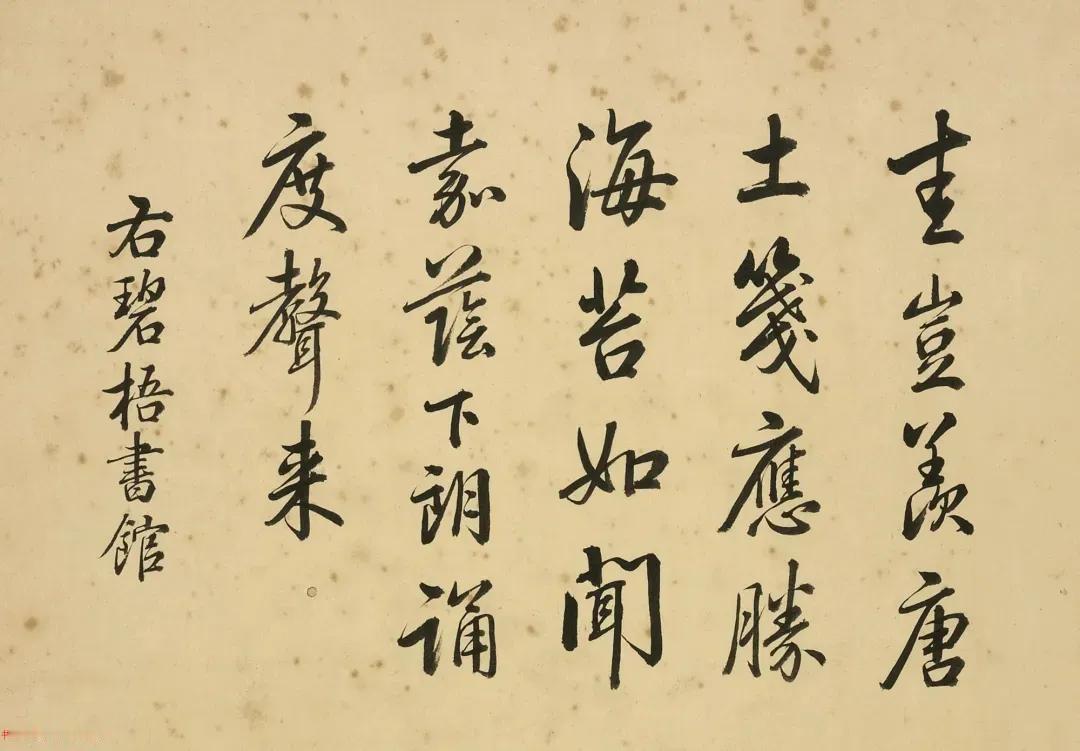 圭豈羨唐
土箋應勝
海苔如聞
嘉蔭下朗誦
度聲来
右碧梧書館